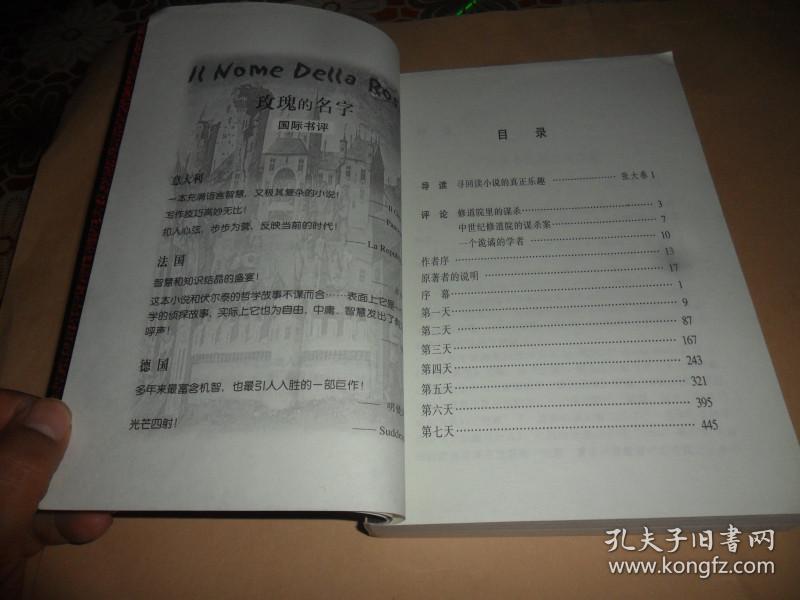 Il Nome Della Ros
玫瑰的名字
国际书评
意大利
一本充满语言智慧，又极其复杂的小说！
写作技巧高妙无比！
扣人心弦，步步为营，反映当前的时代！
—— La Repub
法国
智慧和知识结晶的盛宴！
这本小说和伏尔泰的哲学故事不谋而合……表面上它是一
学的侦探故事，实际上它也为自由、中庸、智慧发出了
呼声！
德国
多年来最富含机智，也最引人入胜的一部巨作！
光芒四射！
—— Sudde
目 录
导 读 寻回读小说的真正乐趣……张大春 1
评 论 修道院里的谋杀……3
中世纪修道院的谋杀案……7
一个诡谲的学者……10
作者序……13
原著者的说明……17
序 幕……1
第一天……9
第二天……87
第三天……167
第四天……243
第五天……321
第六天……395
第七天……445
孔夫子旧书网
www.kongfz.com